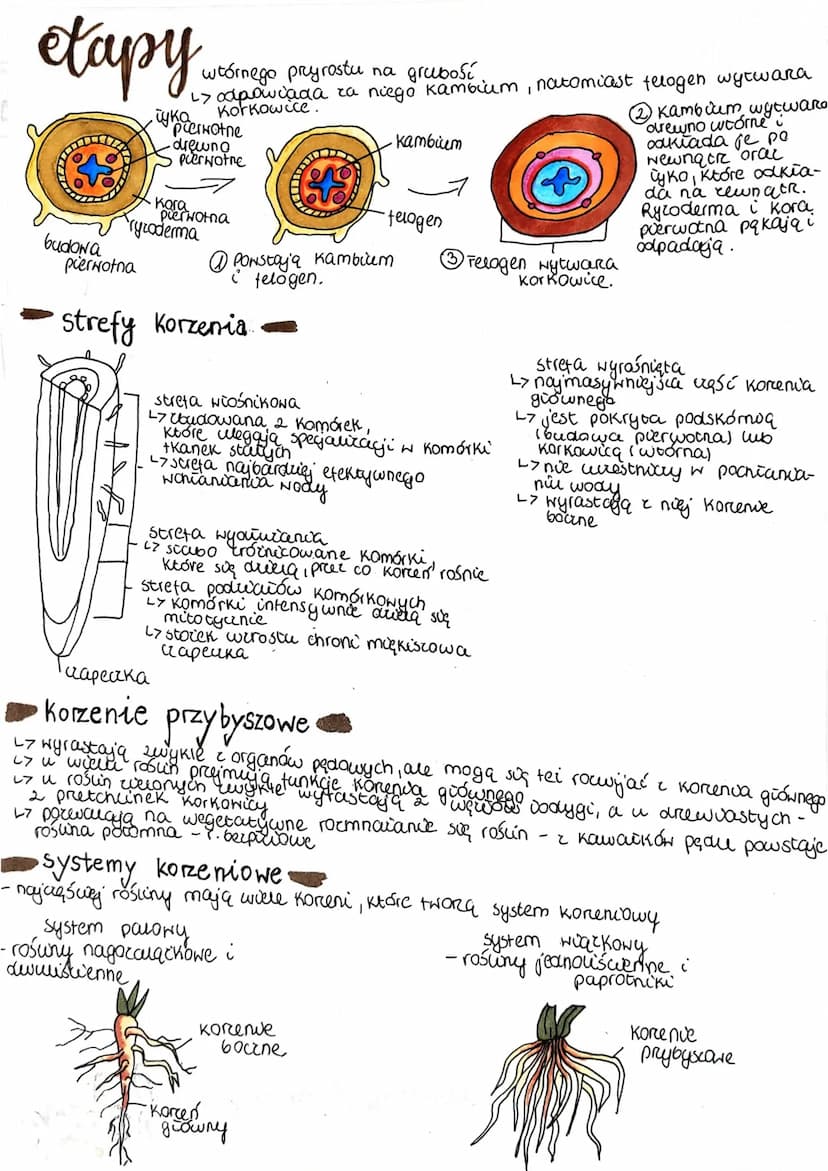 etapy
wtórnego przyrostu na grubość
↳ odpowiada za niego kambium, natomiast felogen wytwarza
korkowicę.
łyko
pierwotne
drewno
pierwotne
kora
pierwotna
ryzoderma
budowa
pierwotna
kambium
felogen
① Powstają kambium
i felogen.
② Kambium wytwarza
drewno wtórne i
odkłada je po
wewnątrz oraz
łyko, które odkła-
da na zewnątrz.
Ryzoderma i kora
pierwotna pękają i
odpadają.
③ Felogen wytwara
korkowicę.
strefy korzenia
strefa włośnikowa
↳ zbudowana z komórek,
które ulegają specjalizacji w komórki
tkanek stałych
↳ strefa najbardziej efektywnego
wchłaniania wody
strefa wydłużania
↳ słabo zróżnicowane komórki,
które się dzielą, przez co korzeń rośnie
strefa podziałów komórkowych
↳ komórki intensywnie dzielą się
mitotycznie
↳ stożek wzrostu chroni miękiszowa
czapeczka
czapeczka
strefa wyrośnięta
↳ najmasywniejsza część korzenia
głównego
↳ jest pokryta podskórnią
(budowa pierwotna) lub
korkowicą (wtórna)
↳ nie uczestniczy w pochłania-
niu wody
↳ wyrastają z niej korzenie
boczne
korzenie przybyszowe
↳ wyrastają zwykle z organów pędowych, ale mogą się też rozwijać z korzenia głównego
↳ u wielu roślin przejmują funkcje korzenia głównego
↳ u roślin zielonych zwykle wyrastają z węzłów łodygi, a u drzewiastych -
z przetchlinek korkowicy
↳ pozwalają na wegetatywne rozmnażanie się roślin - z kawałków pędu powstaje
roślina potomna - r. bezpłciowe
systemy korzeniowe
- najczęściej rośliny mają wiele korzeni, które tworzą system korzeniowy
system palowy
- rośliny nagozalążkowe i
dwuliścienne
korzenie
boczne
korzeń
główny
system wiązkowy
- rośliny jednoliścienne i
paprotniki
korzenie
przybyszowe